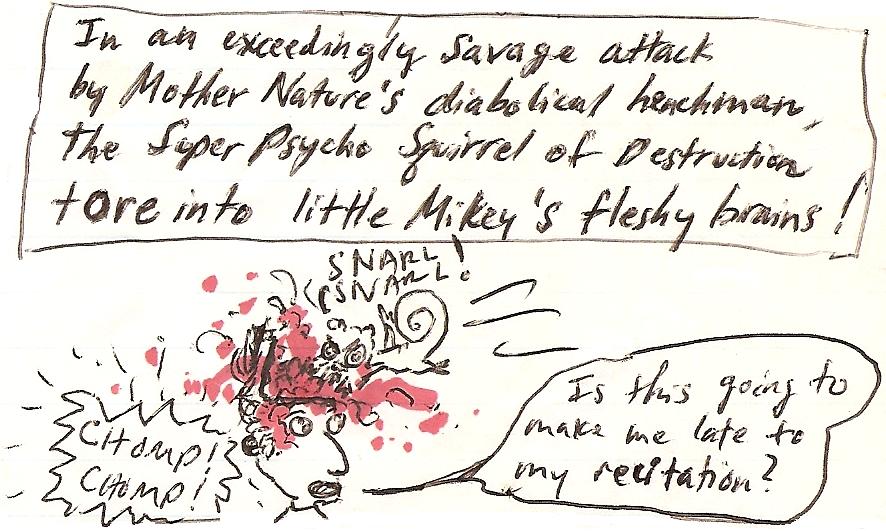 In an exceedingly Savage attack
by Mother Nature's diabolical henchman,
the Super Psycho Squirrel of Destruction
tore into little Mikey's fleshy brains!
SNARL!
SNARL!
CHOMP!
CHOMP!
Is this going to
make me late to
my recitation?